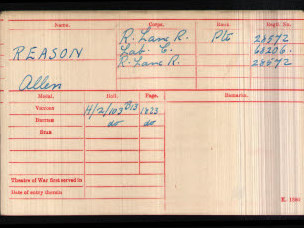 Name. Corps. Rank. Regtl. No.
R. Lanc R. Pte 28572
REASON Lab. C. 68206.
R. Lanc R. 28572
Allen
Medal. Roll. Page. Remarks.
Victory H/2/103 B13 1823
British do do
Star
Theatre of War first served in
Date of entry therein
K. 1380